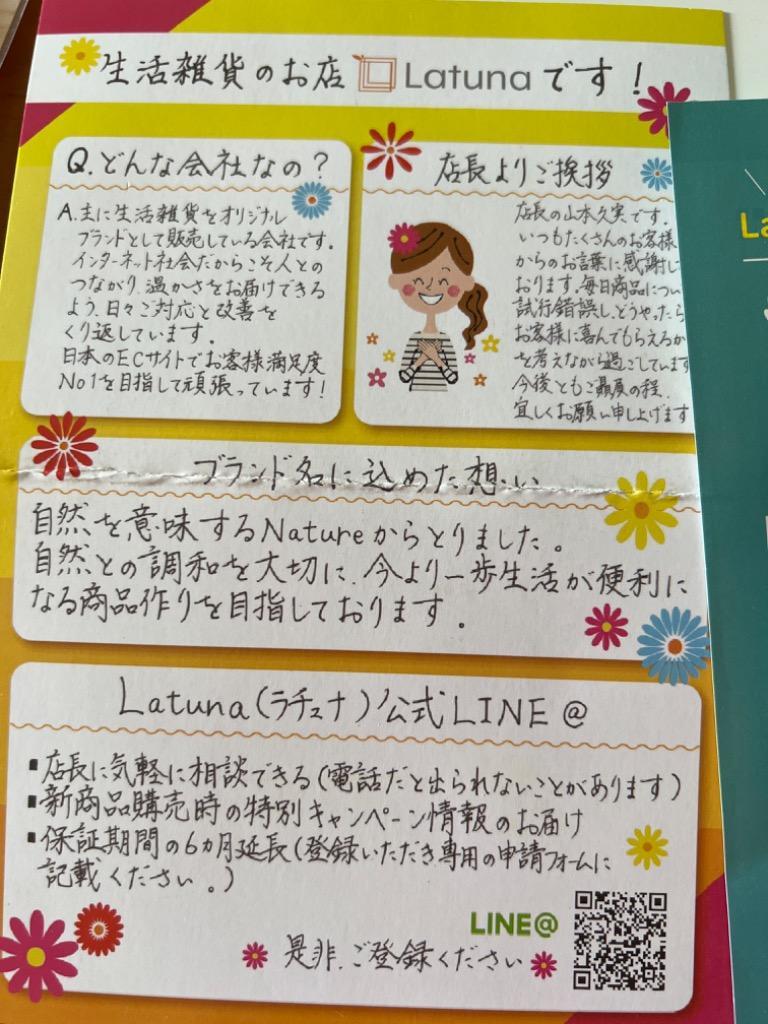 生活雑貨のお店 Latunaです!
Q.どんな会社なの?
A.主に生活雑貨をオリジナル
ブランドとして販売している会社です。
インターネット社会だからこそ人との
つながり、温かさをお届けできる
よう、日々ご対応と改善を
くり返しています。
日本のECサイトでお客様満足度
No1を目指して頑張っています!
店長よりご挨拶
店長の山本久実です。
いつもたくさんのお客様
からのお言葉に感謝し
おります。毎日商品につい
試行錯誤し、どうやったら
お客様に喜んでもらえるか
を考えながら過ごしています
今後ともご贔屓の程、
宜しくお願い申し上げます
ブランド名に込めた想い
自然を意味するNatureからとりました。
自然との調和を大切に、今より一歩生活が便利に
なる商品作りを目指しております。
Latuna(ラチュナ)公式LINE@
▪店長に気軽に相談できる(電話だと出られないことがあります)
▪新商品購売時の特別キャンペーン情報のお届け
▪保証期間の6カ月延長(登録いただき専用の申請フォームに
記載ください。)
LINE@
是非、ご登録ください
La